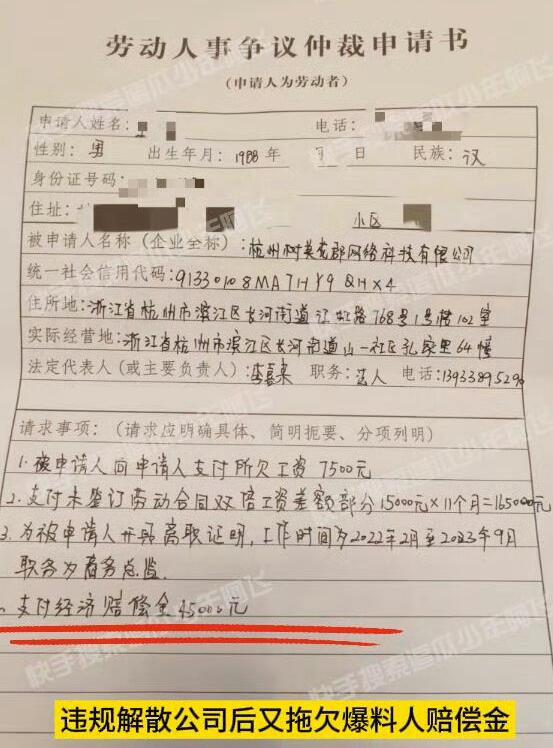 劳动人事争议仲裁申请书
(申请人为劳动者)
申请人姓名: 电话:
性别: 男 出生年月: 1988 年 月 日 民族: 汉
身份证号码:
住址: 小区
被申请人名称 (企业全称): 杭州树英花郡网络科技有限公司
统一社会信用代码: 91330108MA7HY9QHX4
住所地: 浙江省杭州市滨江区长河街道江虹路768号1号楼102室
实际经营地: 浙江省杭州市滨江区长河街道山一社区孔家里64幢
法定代表人 (或主要负责人): 职务: 法人 电话: 13933895290
请求事项: (请求应明确具体、简明扼要、分项列明)
1. 被申请人向申请人支付所欠工资 7500元
2. 支付未签订劳动合同双倍工资差额部分15000元×11个月=165000元
3. 为被申请人开具离职证明, 工作时间为2022年2月至2023年9月
职务为商务总监.
支付经济赔偿金45000元
违规解散公司后又拖欠爆料人赔偿金